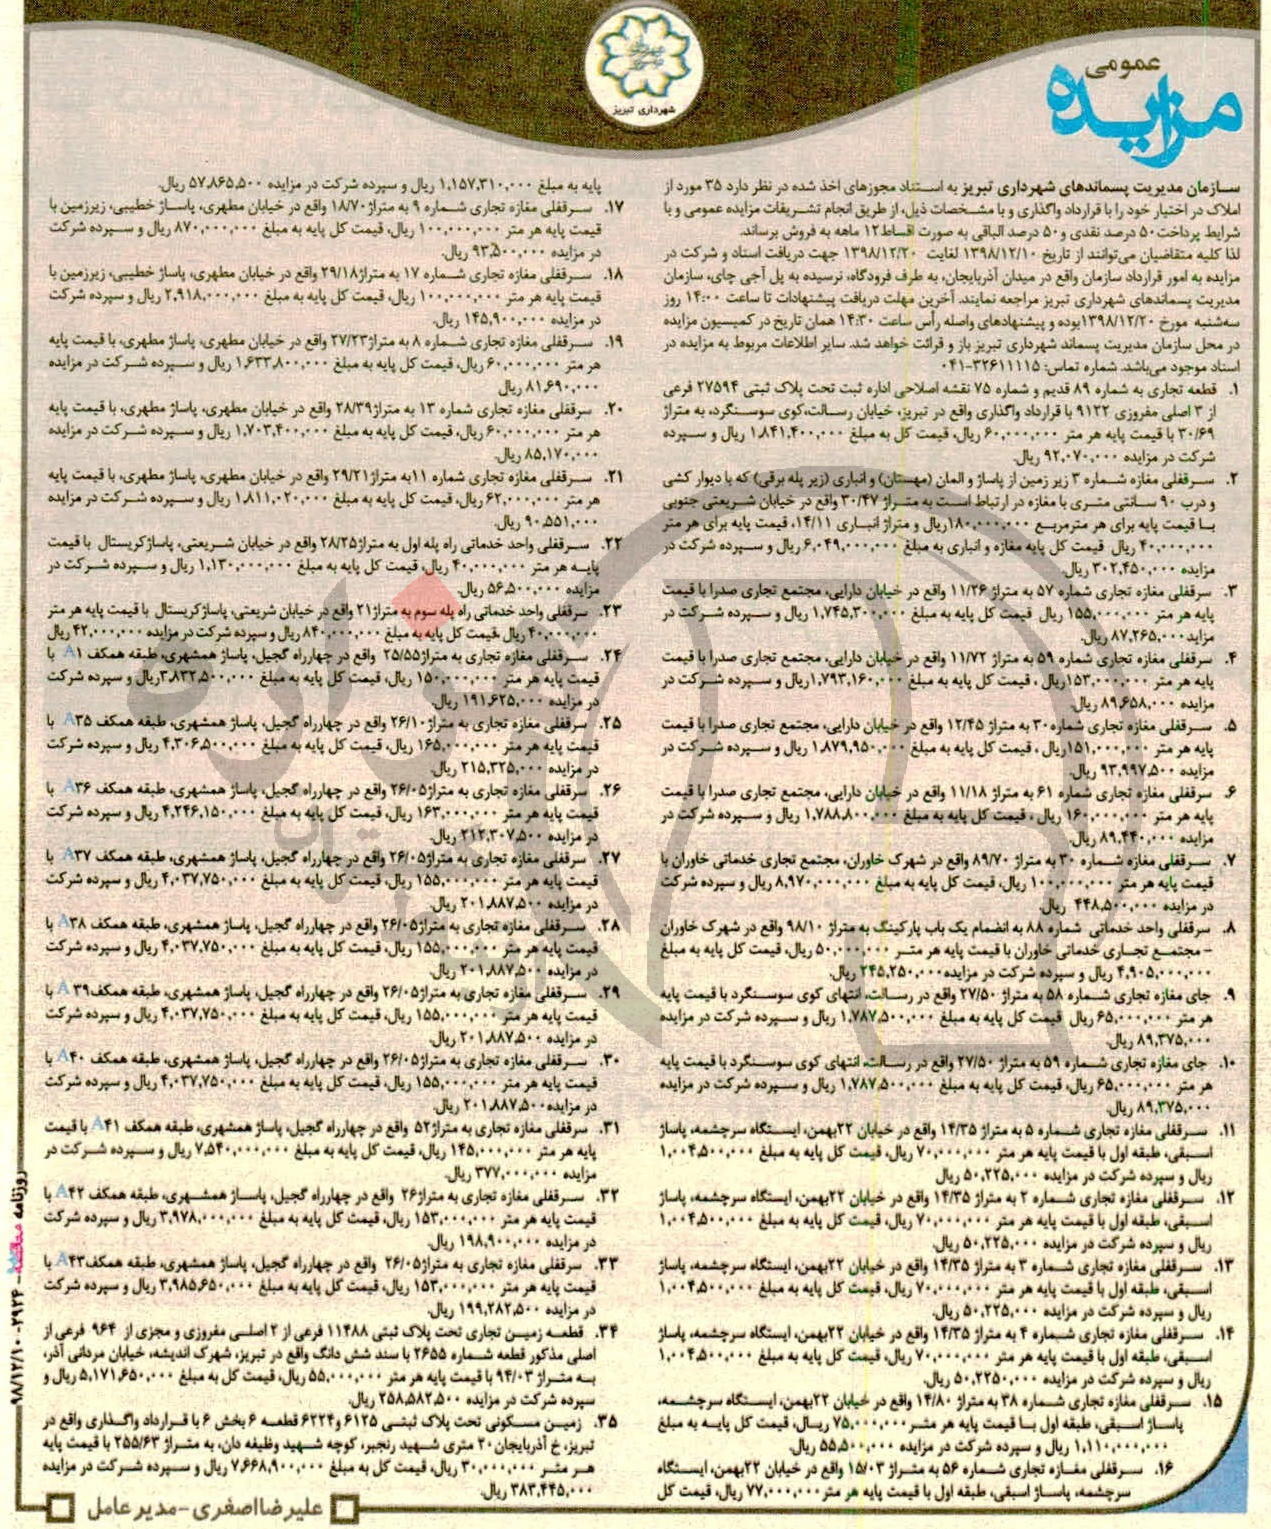 شهرداری تبریز
عمومی
مزایده
سازمان مدیریت پسماندهای شهرداری تبریز به استناد مجوزهای اخذ شده در نظر دارد ۳۵ مورد از
املاک در اختیار خود را با قرارداد واگذاری و با مشخصات ذیل، از طریق انجام تشریفات مزایده عمومی و با
شرایط پرداخت ۵۰ درصد نقدی و ۵۰ درصد الباقی به صورت اقساط ۱۲ ماهه به فروش برساند.
لذا کلیه متقاضیان می‌توانند از تاریخ ۱۳۹۸/۱۲/۱۰ لغایت ۱۳۹۸/۱۲/۲۰ جهت دریافت اسناد و شرکت در
مزایده به امور قرارداد سازمان واقع در میدان آذربایجان، به طرف فرودگاه، نرسیده به پل آجی چای، سازمان
مدیریت پسماندهای شهرداری تبریز مراجعه نمایند. آخرین مهلت دریافت پیشنهادات تا ساعت ۱۴:۰۰ روز
سه‌شنبه مورخ ۱۳۹۸/۱۲/۲۰ بوده و پیشنهادهای واصله رأس ساعت ۱۴:۳۰ همان تاریخ در کمیسیون مزایده
در محل سازمان مدیریت پسماند شهرداری تبریز باز و قرائت خواهد شد. سایر اطلاعات مربوط به مزایده در
اسناد موجود می‌باشد. شماره تماس: ۳۲۶۱۱۱۱۵-۰۴۱
۱. قطعه تجاری به شماره ۸۹ قدیم و شماره ۷۵ نقشه اصلاحی اداره ثبت تحت پلاک ثبتی ۲۷۵۹۴ فرعی
از ۳ اصلی مفروزی ۹۱۲۲ با قرارداد واگذاری واقع در تبریز، خیابان رسالت،کوی سوسنگرد، به متراژ
۳۰/۶۹ با قیمت پایه هر متر ۶۰,۰۰۰,۰۰۰ ریال، قیمت کل به مبلغ ۱,۸۴۱,۴۰۰,۰۰۰ ریال و سپرده
شرکت در مزایده ۹۲,۰۷۰,۰۰۰ ریال.
۲. سرقفلی مغازه شماره ۳ زیر زمین از پاساژ و المان (مهستان) و انباری (زیر پله برقی) که با دیوار کشی
و درب ۹۰ سانتی متری با مغازه در ارتباط است به متراژ ۳۰/۴۷ واقع در خیابان شریعتی جنوبی
با قیمت پایه برای هر مترمربع ۱۸۰,۰۰۰,۰۰۰ریال و متراژ انباری ۱۴/۱۱، قیمت پایه برای هر متر
۴۰,۰۰۰,۰۰۰ ریال قیمت کل پایه مغازه و انباری به مبلغ ۶,۰۴۹,۰۰۰,۰۰۰ ریال و سپرده شرکت در
مزایده ۳۰۲,۴۵۰,۰۰۰ ریال.
۳. سرقفلی مغازه تجاری شماره ۵۷ به متراژ ۱۱/۲۶ واقع در خیابان دارایی، مجتمع تجاری صدرا با قیمت
پایه هر متر ۱۵۵,۰۰۰,۰۰۰ ریال قیمت کل پایه به مبلغ ۱,۷۴۵,۳۰۰,۰۰۰ ریال و سپرده شرکت در
مزاید ۸۷,۲۶۵,۰۰۰ ریال.
۴. سرقفلی مغازه تجاری شماره ۵۹ به متراژ ۱۱/۷۲ واقع در خیابان دارایی، مجتمع تجاری صدرا با قیمت
پایه هر متر ۱۵۳,۰۰۰,۰۰۰ریال ، قیمت کل پایه به مبلغ ۱,۷۹۳,۱۶۰,۰۰۰ریال و سپرده شرکت در
مزایده ۸۹,۶۵۸,۰۰۰ ریال.
۵. سرقفلی مغازه تجاری شماره۳۰ به متراژ ۱۲/۴۵ واقع در خیابان دارایی، مجتمع تجاری صدرا با قیمت
پایه هر متر ۱۵۱,۰۰۰,۰۰۰ریال ، قیمت کل پایه به مبلغ ۱,۸۷۹,۹۵۰,۰۰۰ ریال و سپرده شرکت در
مزایده ۹۳,۹۹۷,۵۰۰ ریال.
۶. سرقفلی مغازه تجاری شماره ۶۱ به متراژ ۱۱/۱۸ واقع در خیابان دارایی، مجتمع تجاری صدرا با قیمت
پایه هر متر ۱۶۰,۰۰۰,۰۰۰ ریال ، قیمت کل پایه به مبلغ ۱,۷۸۸,۸۰۰,۰۰۰ ریال و سپرده شرکت در
مزایده ۸۹,۴۴۰,۰۰۰ ریال.
۷. سرقفلی مغازه شماره ۳۰ به متراژ ۸۹/۷۰ واقع در شهرک خاوران، مجتمع تجاری خدماتی خاوران با
قیمت پایه هر متر ۱۰۰,۰۰۰,۰۰۰ ریال، قیمت کل پایه به مبلغ ۸,۹۷۰,۰۰۰,۰۰۰ ریال و سپرده شرکت
در مزایده ۴۴۸,۵۰۰,۰۰۰ ریال.
۸. سرقفلی واحد خدماتی شماره ۸۸ به انضمام یک باب پارکینگ به متراژ ۹۸/۱۰ واقع در شهرک خاوران
- مجتمع تجاری خدماتی خاوران با قیمت پایه هر متر ۵۰,۰۰۰,۰۰۰ ریال، قیمت کل پایه به مبلغ
۴,۹۰۵,۰۰۰,۰۰۰ ریال و سپرده شرکت در مزایده۲۴۵,۲۵۰,۰۰۰ ریال.
۹. جای مغازه تجاری شماره ۵۸ به متراژ ۲۷/۵۰ واقع در رسالت، انتهای کوی سوسنگرد با قیمت پایه
هر متر ۶۵,۰۰۰,۰۰۰ ریال قیمت کل پایه به مبلغ ۱,۷۸۷,۵۰۰,۰۰۰ ریال و سپرده شرکت در مزایده
۸۹,۳۷۵,۰۰۰ ریال.
۱۰. جای مغازه تجاری شماره ۵۹ به متراژ ۲۷/۵۰ واقع در رسالت، انتهای کوی سوسنگرد با قیمت پایه
هر متر ۶۵,۰۰۰,۰۰۰ ریال، قیمت کل پایه به مبلغ ۱,۷۸۷,۵۰۰,۰۰۰ ریال و سپرده شرکت در مزایده
۸۹,۳۷۵,۰۰۰ ریال.
۱۱. سرقفلی مغازه تجاری شماره ۵ به متراژ ۱۴/۳۵ واقع در خیابان ۲۲بهمن، ایستگاه سرچشمه، پاساژ
اسبقی، طبقه اول با قیمت پایه هر متر ۷۰,۰۰۰,۰۰۰ ریال، قیمت کل پایه به مبلغ ۱,۰۰۴,۵۰۰,۰۰۰
ریال و سپرده شرکت در مزایده ۵۰,۲۲۵,۰۰۰ ریال
۱۲. سرقفلی مغازه تجاری شماره ۲ به متراژ ۱۴/۳۵ واقع در خیابان ۲۲بهمن، ایستگاه سرچشمه، پاساژ
اسبقی، طبقه اول با قیمت پایه هر متر ۷۰,۰۰۰,۰۰۰ ریال، قیمت کل پایه به مبلغ ۱,۰۰۴,۵۰۰,۰۰۰
ریال و سپرده شرکت در مزایده ۵۰,۲۲۵,۰۰۰ ریال.
۱۳. سرقفلی مغازه تجاری شماره ۳ به متراژ ۱۴/۳۵ واقع در خیابان ۲۲بهمن، ایستگاه سرچشمه، پاساژ
اسبقی، طبقه اول با قیمت پایه هر متر ۷۰,۰۰۰,۰۰۰ ریال، قیمت کل پایه به مبلغ ۱,۰۰۴,۵۰۰,۰۰۰
ریال و سپرده شرکت در مزایده ۵۰,۲۲۵,۰۰۰ ریال.
۱۴. سرقفلی مغازه تجاری شماره ۴ به متراژ ۱۴/۳۵ واقع در خیابان ۲۲بهمن، ایستگاه سرچشمه، پاساژ
اسبقی، طبقه اول با قیمت پایه هر متر ۷۰,۰۰۰,۰۰۰ ریال، قیمت کل پایه به مبلغ ۱,۰۰۴,۵۰۰,۰۰۰
ریال و سپرده شرکت در مزایده ۵۰,۲۲۵۰,۰۰۰ ریال.
۱۵. سرقفلی مغازه تجاری شماره ۳۸ به متراژ ۱۴/۸۰ واقع در خیابان ۲۲بهمن، ایستگاه سرچشمه،
پاساژ اسبقی، طبقه اول با قیمت پایه هر متر ۷۵,۰۰۰,۰۰۰ ریال، قیمت کل پایه به مبلغ
۱,۱۱۰,۰۰۰,۰۰۰ ریال و سپرده شرکت در مزایده ۵۵,۵۰۰,۰۰۰ ریال.
۱۶. سرقفلی مغازه تجاری شماره ۵۶ به متراژ ۱۵/۰۳ واقع در خیابان ۲۲بهمن، ایستگاه
سرچشمه، پاساژ اسبقی، طبقه اول با قیمت پایه هر متر ۷۷,۰۰۰,۰۰۰ ریال، قیمت کل
پایه به مبلغ ۱,۱۵۷,۳۱۰,۰۰۰ ریال و سپرده شرکت در مزایده ۵۷,۸۶۵,۵۰۰ ریال.
۱۷. سرقفلی مغازه تجاری شماره ۹ به متراژ۱۸/۷۰ واقع در خیابان مطهری، پاساژ خطیبی، زیرزمین با
قیمت پایه هر متر ۱۰۰,۰۰۰,۰۰۰ ریال، قیمت کل پایه به مبلغ ۸۷۰,۰۰۰,۰۰۰ ریال و سپرده شرکت
در مزایده ۹۳,۵۰۰,۰۰۰ ریال.
۱۸. سرقفلی مغازه تجاری شماره ۱۷ به متراژ۲۹/۱۸ واقع در خیابان مطهری، پاساژ خطیبی، زیرزمین با
قیمت پایه هر متر ۱۰۰,۰۰۰,۰۰۰ ریال، قیمت کل پایه به مبلغ ۲,۹۱۸,۰۰۰,۰۰۰ ریال و سپرده شرکت
در مزایده ۱۴۵,۹۰۰,۰۰۰ ریال.
۱۹. سرقفلی مغازه تجاری شماره ۸ به متراژ۲۷/۲۳ واقع در خیابان مطهری، پاساژ مطهری، با قیمت پایه
هر متر ۶۰,۰۰۰,۰۰۰ ریال، قیمت کل پایه به مبلغ ۱,۶۳۳,۸۰۰,۰۰۰ ریال و سپرده شرکت در مزایده
۸۱,۶۹۰,۰۰۰ ریال
۲۰. سرقفلی مغازه تجاری شماره ۱۳ به متراژ۲۸/۳۹ واقع در خیابان مطهری، پاساژ مطهری، با قیمت پایه
هر متر ۶۰,۰۰۰,۰۰۰ ریال، قیمت کل پایه به مبلغ ۱,۷۰۳,۴۰۰,۰۰۰ ریال و سپرده شرکت در مزایده
۸۵,۱۷۰,۰۰۰ ریال.
۲۱. سرقفلی مغازه تجاری شماره ۱۱به متراژ۲۹/۲۱ واقع در خیابان مطهری، پاساژ مطهری، با قیمت پایه
هر متر ۶۲,۰۰۰,۰۰۰ ریال، قیمت کل پایه به مبلغ ۱,۸۱۱,۰۲۰,۰۰۰ ریال و سپرده شرکت در مزایده
۹۰,۵۵۱,۰۰۰ ریال.
۲۲. سرقفلی واحد خدماتی راه پله اول به متراژ۲۸/۲۵ واقع در خیابان شریعتی، پاساژکریستال با قیمت
پایه هر متر ۴۰,۰۰۰,۰۰۰ ریال، قیمت کل پایه به مبلغ ۱,۱۳۰,۰۰۰,۰۰۰ ریال و سپرده شرکت در
مزایده ۵۶,۵۰۰,۰۰۰ ریال.
۲۳. سرقفلی واحد خدماتی راه پله سوم به متراژ۲۱ واقع در خیابان شریعتی، پاساژکریستال با قیمت پایه هر متر
۴۰,۰۰۰,۰۰۰ ریال ،قیمت کل پایه به مبلغ ۸۴۰,۰۰۰,۰۰۰ ریال و سپرده شرکت در مزایده ۴۲,۰۰۰,۰۰۰ ریال
۲۴. سرقفلی مغازه تجاری به متراژ۲۵/۵۵ واقع در چهارراه گجیل، پاساژ همشهری، طبقه همکف A۱ با
قیمت پایه هر متر ۱۵۰,۰۰۰,۰۰۰ ریال، قیمت کل پایه به مبلغ ۳,۸۳۲,۵۰۰,۰۰۰ریال و سپرده شرکت
در مزایده ۱۹۱,۶۲۵,۰۰۰ ریال.
۲۵. سرقفلی مغازه تجاری به متراژ۲۶/۱۰ واقع در چهارراه گجیل، پاساژ همشهری، طبقه همکف A۳۵ با
قیمت پایه هر متر ۱۶۵,۰۰۰,۰۰۰ ریال، قیمت کل پایه به مبلغ ۴,۳۰۶,۵۰۰,۰۰۰ ریال و سپرده شرکت
در مزایده ۲۱۵,۳۲۵,۰۰۰ ریال.
۲۶. سرقفلی مغازه تجاری به متراژ۲۶/۰۵ واقع در چهارراه گجیل، پاساژ همشهری، طبقه همکف A۳۶ با
قیمت پایه هر متر ۱۶۳,۰۰۰,۰۰۰ ریال، قیمت کل پایه به مبلغ ۴,۲۴۶,۱۵۰,۰۰۰ ریال و سپرده شرکت
در مزایده ۲۱۲,۳۰۷,۵۰۰ ریال.
۲۷. سرقفلی مغازه تجاری به متراژ۲۶/۰۵ واقع در چهارراه گجیل، پاساژ همشهری، طبقه همکف A۳۷ با
قیمت پایه هر متر ۱۵۵,۰۰۰,۰۰۰ ریال، قیمت کل پایه به مبلغ ۴,۰۳۷,۷۵۰,۰۰۰ ریال و سپرده شرکت
در مزایده ۲۰۱,۸۸۷,۵۰۰ ریال.
۲۸. سرقفلی مغازه تجاری به متراژ۲۶/۰۵ واقع در چهارراه گجیل، پاساژ همشهری، طبقه همکف A۳۸ با
قیمت پایه هر متر ۱۵۵,۰۰۰,۰۰۰ ریال، قیمت کل پایه به مبلغ ۴,۰۳۷,۷۵۰,۰۰۰ ریال و سپرده شرکت
در مزایده ۲۰۱,۸۸۷,۵۰۰ ریال.
۲۹. سرقفلی مغازه تجاری به متراژ۲۶/۰۵ واقع در چهارراه گجیل، پاساژ همشهری، طبقه همکف A۳۹ با
قیمت پایه هر متر ۱۵۵,۰۰۰,۰۰۰ ریال، قیمت کل پایه به مبلغ ۴,۰۳۷,۷۵۰,۰۰۰ ریال و سپرده شرکت
در مزایده ۲۰۱,۸۸۷,۵۰۰ ریال.
۳۰. سرقفلی مغازه تجاری به متراژ۲۶/۰۵ واقع در چهارراه گجیل، پاساژ همشهری، طبقه همکف A۴۰ با
قیمت پایه هر متر ۱۵۵,۰۰۰,۰۰۰ ریال، قیمت کل پایه به مبلغ ۴,۰۳۷,۷۵۰,۰۰۰ ریال و سپرده شرکت
در مزایده ۲۰۱,۸۸۷,۵۰۰ ریال.
۳۱. سرقفلی مغازه تجاری به متراژ۵۲ واقع در چهارراه گجیل، پاساژ همشهری، طبقه همکف A۴۱ با قیمت
پایه هر متر ۱۴۵,۰۰۰,۰۰۰ ریال، قیمت کل پایه به مبلغ ۷,۵۴۰,۰۰۰,۰۰۰ ریال و سپرده شرکت در
مزایده ۳۷۷,۰۰۰,۰۰۰ ریال.
۳۲. سرقفلی مغازه تجاری به متراژ۲۶ واقع در چهارراه گجیل، پاساژ همشهری، طبقه همکف A۴۲ با
قیمت پایه هر متر ۱۵۳,۰۰۰,۰۰۰ ریال، قیمت کل پایه به مبلغ ۳,۹۷۸,۰۰۰,۰۰۰ ریال و سپرده شرکت
در مزایده ۱۹۸,۹۰۰,۰۰۰ ریال.
۳۳. سرقفلی مغازه تجاری به متراژ۲۶/۰۵ واقع در چهارراه گجیل، پاساژ همشهری، طبقه همکفA۴۳ با
قیمت پایه هر متر ۱۵۳,۰۰۰,۰۰۰ ریال، قیمت کل پایه به مبلغ ۳,۹۸۵,۶۵۰,۰۰۰ ریال و سپرده شرکت
در مزایده ۱۹۹,۲۸۲,۵۰۰ ریال.
۳۴. قطعه زمین تجاری تحت پلاک ثبتی ۱۱۴۸۸ فرعی از ۲ اصلی مفروزی و مجزی از ۹۶۴ فرعی از
اصلی مذکور قطعه شماره ۲۶۵۵ با سند شش دانگ واقع در تبریز، شهرک اندیشه، خیابان مردانی آذر،
به متراژ ۹۴/۰۳ با قیمت پایه هر متر ۵۵,۰۰۰,۰۰۰ ریال، قیمت کل به مبلغ ۵,۱۷۱,۶۵۰,۰۰۰ ریال و
سپرده شرکت در مزایده ۲۵۸,۵۸۲,۵۰۰ ریال.
۳۵. زمین مسکونی تحت پلاک ثبتی ۶۱۲۵ و۶۲۲۴ قطعه ۶ بخش ۶ با قرارداد واگذاری واقع در
تبریز، خ آذربایجان ۲۰ متری شهید رنجبر، کوچه شهید وظیفه دان، به متراژ ۲۵۵/۶۳ با قیمت پایه
هر متر ۳۰,۰۰۰,۰۰۰ ریال، قیمت کل به مبلغ ۷,۶۶۸,۹۰۰,۰۰۰ ریال و سپرده شرکت در مزایده
۳۸۳,۴۴۵,۰۰۰ ریال.
علیرضا اصغری - مدیر عامل
روزنامه مناقصه - ۲۹۲۴ - ۹۸/۱۲/۱۰